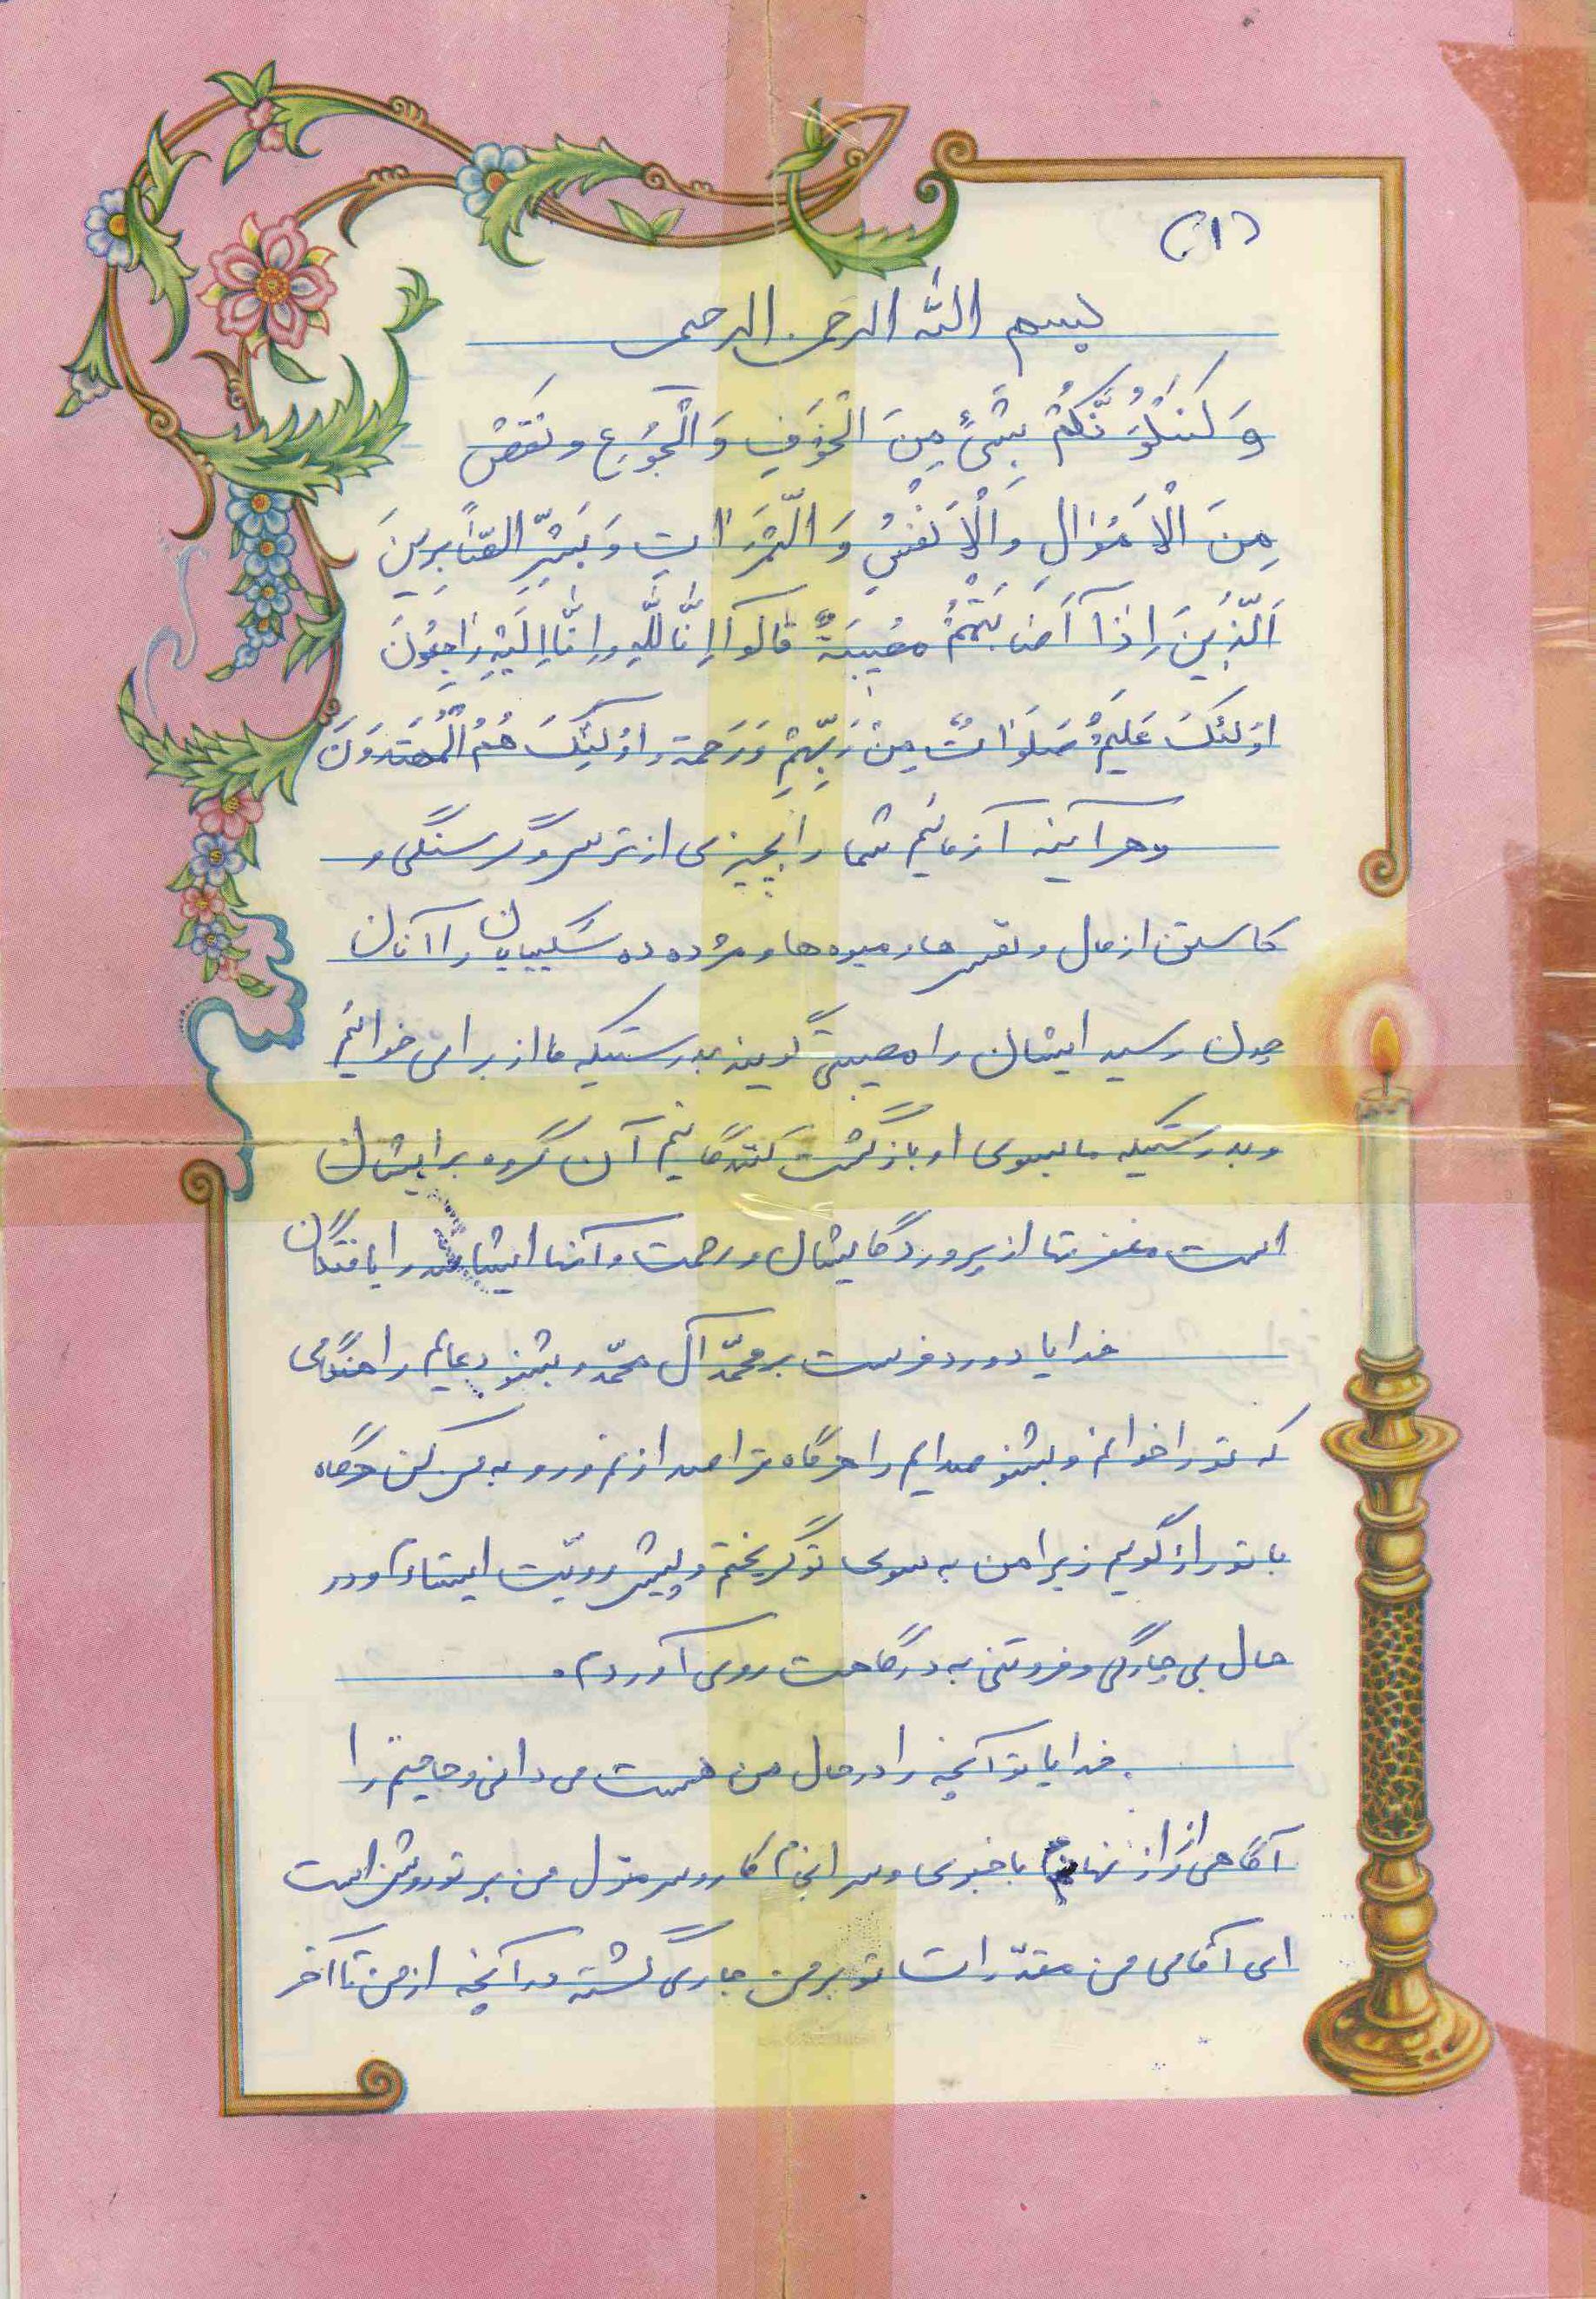 (۱)
بسم الله الرحمن الرحیم
وَلَنَبْلُوَنَّكُمْ بِشَیْءٍ مِنَ الْخَوْفِ وَ الْجُوعِ وَ نَقْصٍ
مِنَ الْاَمْوٰالِ وَ الْاَنْفُسِ وَ الثَّمَرٰاتِ وَ بَشِّرِ الصّٰابِرِینَ
اَلَّذِینَ اِذٰا اَصٰابَتْهُمْ مُصیبَةٌ قٰالُوا اِنّٰا لِلّٰهِ وَ اِنّٰا اِلَیْهِ رٰاجِعُونَ
اوُلئِكَ عَلَیْهِمْ صَلَوٰاتٌ مِنْ رَبِّهِمْ وَ رَحمة و اوُلئِكَ هُمُ الْمُهتَدوُنَ
و هر آئینه آزمائیم شما را بچیزی از ترس و گرسنگی و
کاستن از مال و نفس ها و میوه ها و مژده ده شکیبایان را آنان
چون رسید ایشان را مصیبتی گویند بدرستیکه ما از برای خدائیم
و بدرستیکه ما بسوی او بازگشت کنندگانیم آن گروه بر ایشان
است مغفرتها از پروردگارشان و رحمت و آنها ایشانند راه یافتگان
خدایا درود فرست بر محمّد آل محمّد و بشنو دعایم را هنگامی
که تو را خوانم و بشنو صدایم را هرگاه ترا صدا زنم و رو به من کن هرگاه
با تو راز گویم زیرا من به سوی تو گریختم و پیش رویت ایستادم و در
حال بی چارگی و فروتنی به درگاهت روی آوردم.
خدایا تو آنچه را در حال من هست می دانی و حاجتم را
آگاهی از راز نهانم با خبری و سرانجام کار و سر منزل من بر تو روشن است
ای آقای من مقدّرات تو بر من جاری گشته در آنچه از من تا آخر